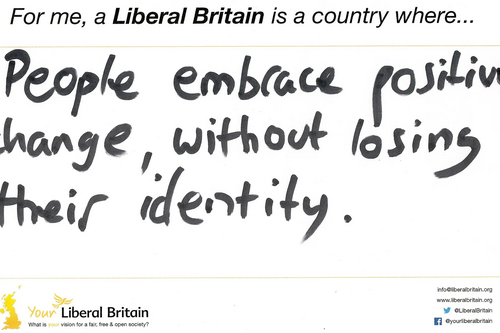 For me, a Liberal Britain is a country where...
People embrace positiv
hange, without losing
their identity.
Your Liberal Britain
What is your vision for a fair, free & open society?
info@liberalbritain.org
www.liberalbritain.org
@LiberalBritain
@yourliberalbritain